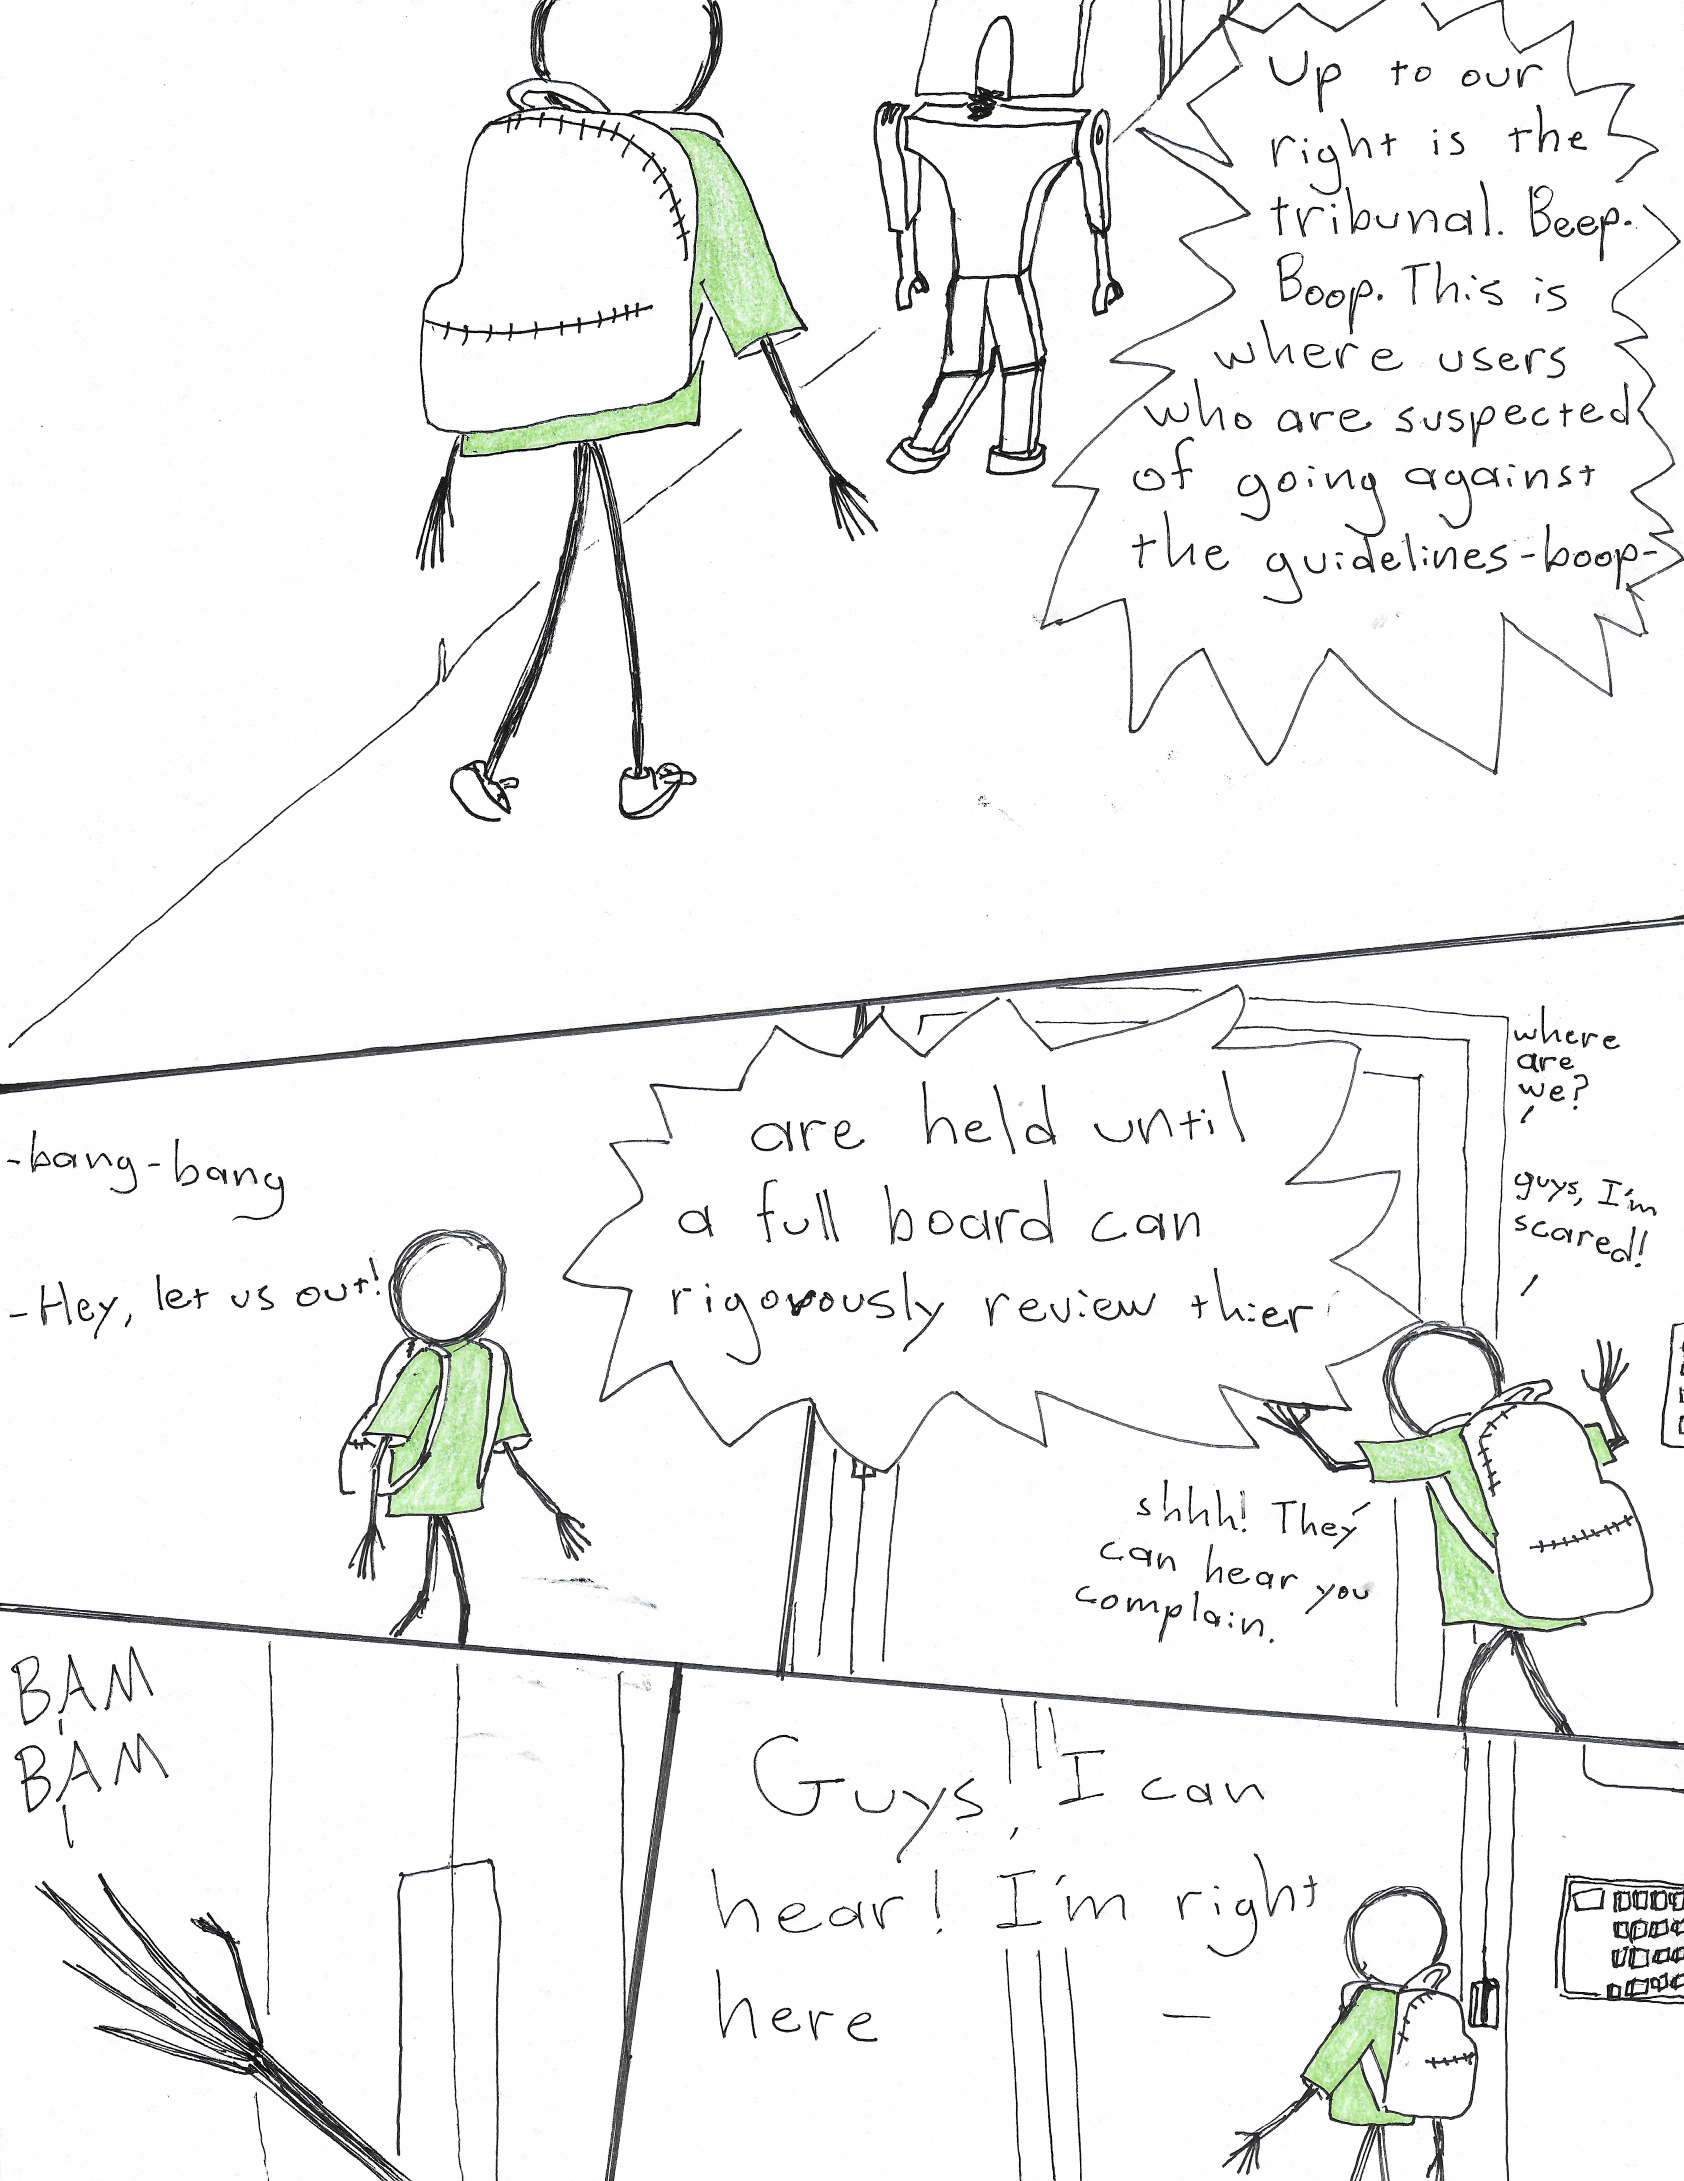 Up to our
right is the
tribunal. Beep.
Boop. This is
where users
who are suspected
of going against
the guidelines-boop-
-bang-bang
-Hey, let us out!
are held until
a full board can
rigorously review thier
where
are
we?
guys, I'm
scared!
shhh! They
can hear you
complain.
BAM
BAM
Guys, I can
hear! I'm right
here —